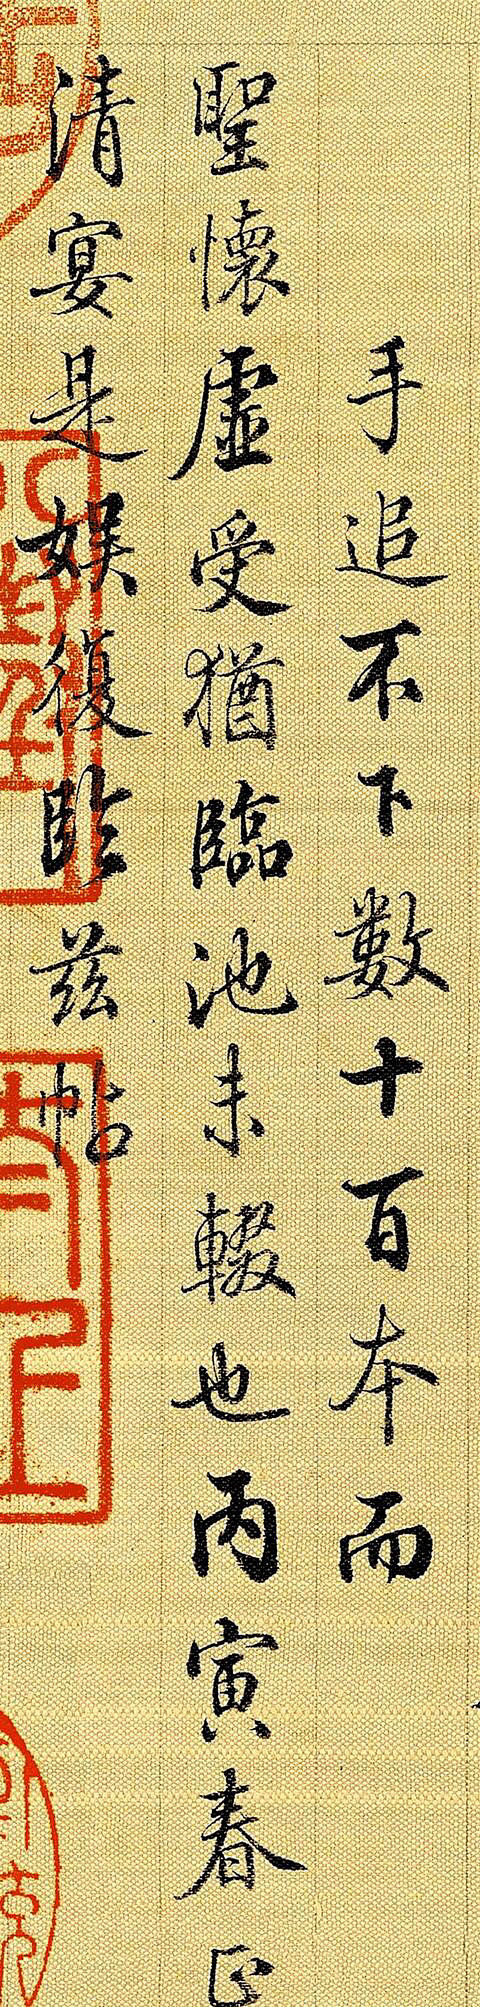 手追不下數十百本而
聖懷虛受猶臨池未輟也丙寅春正
清宴是娛復臨茲帖